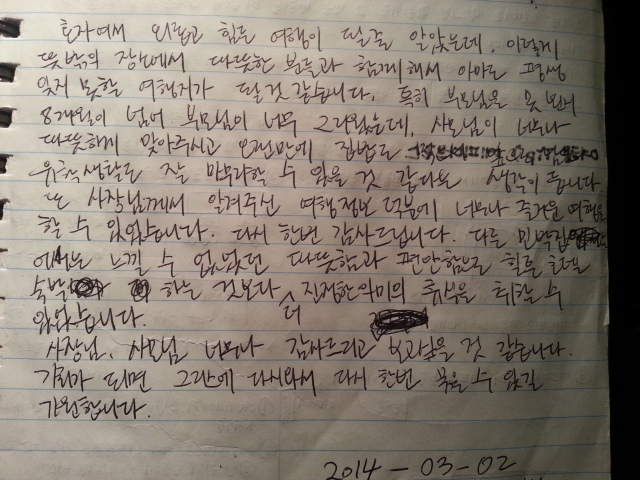 혼자여서 외롭고 힘든 여행이 될줄 알았는데, 이렇게
뜻밖의 장소에서 따뜻한 분들과 함께해서 아마도 평생
잊지 못할 여행지가 될것 같습니다. 특히 부모님을 못 본지
8개월이 넘어 부모님이 너무 그리웠는데, 사모님이 너무나
따뜻하게 맞아주시고 오랜만에 집밥도
유학생활도 잘 마무리할 수 있을 것 같다는 생각이 듭니다.
또 사장님께서 알려주신 여행정보 덕분에 너무나 즐거운 여행을
할 수 있었습니다. 다시 한번 감사드립니다. 다른 민박집
에서는 느낄 수 없었던 따뜻함과 편안함으로
숙박 하는 것보다 더 진정한 의미의 휴식을 취할 수
있었습니다.
사장님, 사모님 너무나 감사드리고 보고싶을 것 같습니다.
기회가 되면 그리스에 다시와서 다시 한번 묵을 수 있길
기원합니다.
2014-03-02